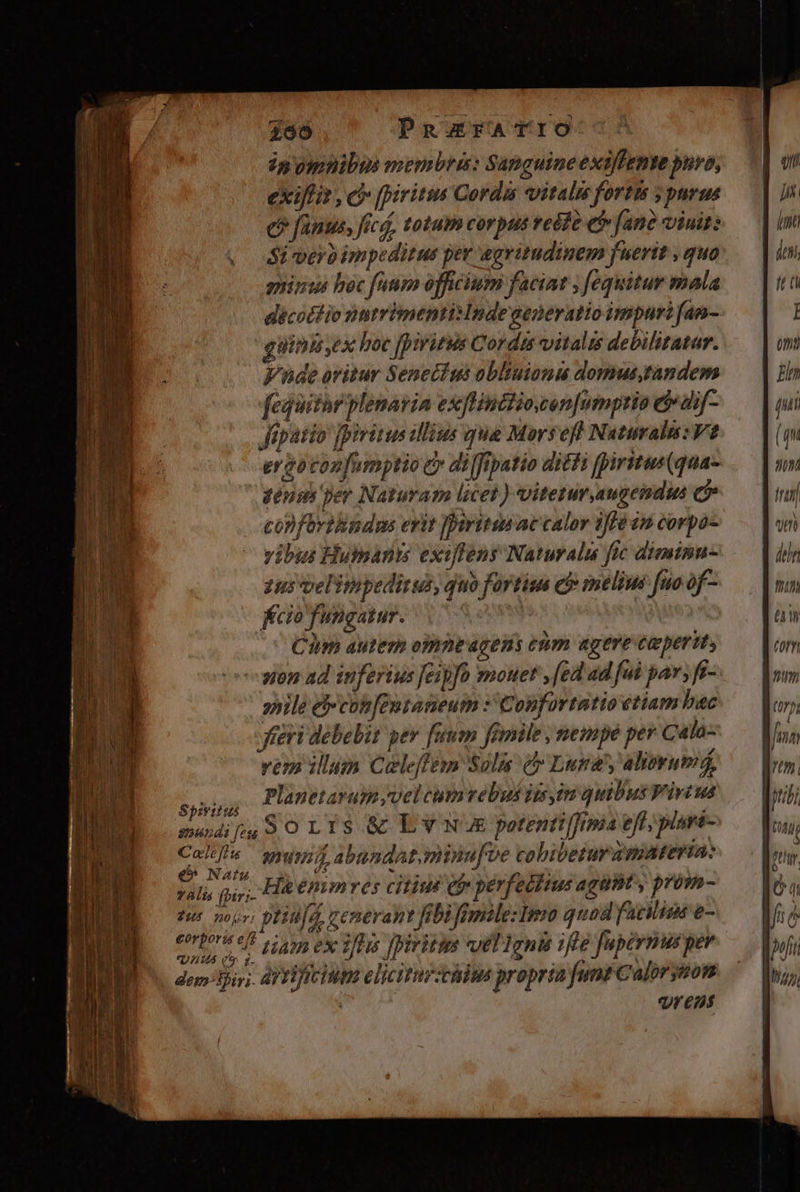 166 PRÆFATIO
in omnibus membris: Sanguine exiſtente puro,
exiſtit, & ſpiritus Cordis vitalis fortis, purus
& ſanus, ſicq́, totum corpus rectè & ſanè viuit:
Si verò impeditus per ægritudinem fuerit, quo
minus hoc ſuum officium faciat, ſequitur mala
decoctio nutrimenti: Inde generatio impuri ſan-
guinis, ex hoc ſpiritus Cordis vitalis debilitatur.
Vnde oritur Senectus obliuionis domus, tandem
ſequitur plenaria exſtinctio, conſumptio & diſ-
ſipatio ſpiritus illius quæ Mors eſt Naturalis: Vt
ergo conſumptio & diſſipatio dicti ſpiritus (qua-
tenus per Naturam licet) vitetur, augendus &
confortandus erit ſpiritus ac calor iſte in corpo-
ribus Humanis exiſtens Naturalis ſic diminu-
tus vel impeditus, quò fortius & melius ſuo of-
ficio fungatur.
Cùm autem omne agens cùm agere cœperit,
non ad inferius ſeipſo mouet, ſed ad ſui par, ſi-
mile & conſentaneum: Confortatio etiam hæc
fieri debebit per ſuum ſimile, nempè per Calo-
rem illum Cæleſtem Solis & Lunæ, aliorumq́,
Planetarum, vel cum rebus iis, in quibus Virtus
SOLIS & LVNÆ potentiſſima eſt, pluri-
mumq́, abundat, minuſve cohibetur à materia:
Hæ enim res citiùs & perfectius agunt, prom-
ptiuſq́, generant ſibi ſimile: Imo quod facilius e-
tiam ex iſtis ſpiritus vel Ignis iſte ſupernus per
artificium elicitur: cuius propria ſunt Calor, non
vrens
Spiritus
mundi ſeu
Cæleſtis
& Natu
ralis ſpiri-
tus noſtri
corporis eſt
vnus &
dem Spiri.